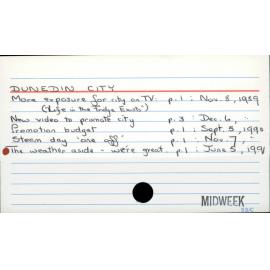 DUNEDIN CITY
More exposure for city on TV: p.1 : Nov. 8, 1989
("Life in the Fridge Exists")
New video to promote city p.3 : Dec. 6, :
Promotion budget p.1 : Sept. 5, 1990
Steam day 'one off' p.1 : Nov. 7, "
The weather aside - we're great p.1 : June 5, 1991
MIDWEEK